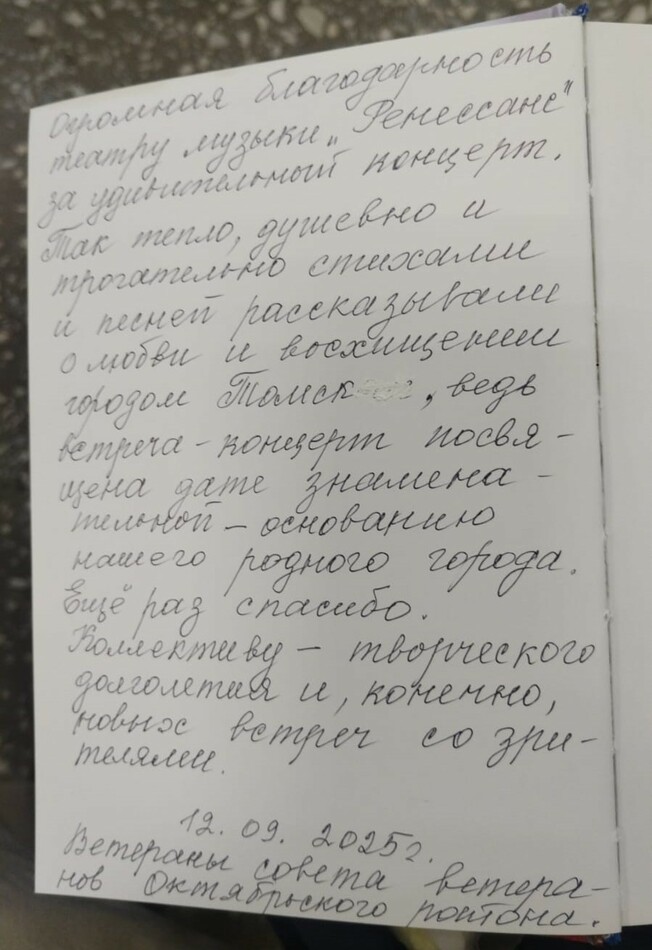 Огромная благодарность
театру музыки „Ренессанс"
за удивительный концерт.
Так тепло, душевно и
трогательно стихами
и песней рассказывали
о любви и восхищении
городом Томск, ведь
встреча - концерт посвя-
щена дате знамена-
тельной - основанию
нашего родного города.
Ещё раз спасибо.
Коллективу - творческого
долголетия и, конечно,
новых встреч со зри-
телями.
12. 09. 2025г.
Ветераны совета ветера-
нов Октябрьского района.